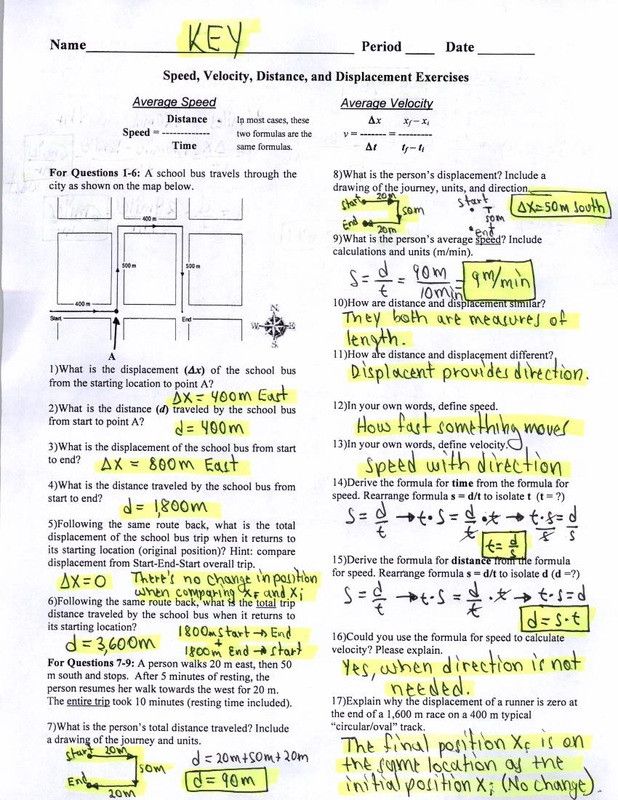 Name KEY Period ____ Date ____
Speed, Velocity, Distance, and Displacement Exercises
Average Speed
Distance
Speed = -------------
Time
In most cases, these
two formulas are the
same formulas.
Average Velocity
Δx xf – xi
v = ------- = ---------
Δt tf – ti
For Questions 1-6: A school bus travels through the
city as shown on the map below.
400 m
500 m
500 m
400 m
Start
End
N
W
E
S
A
1)What is the displacement (Δx) of the school bus
from the starting location to point A?
ΔX = 400m East
2)What is the distance (d) traveled by the school bus
from start to point A?
d = 400m
3)What is the displacement of the school bus from start
to end? ΔX = 800m East
4)What is the distance traveled by the school bus from
start to end?
d = 1,800m
5)Following the same route back, what is the total
displacement of the school bus trip when it returns to
its starting location (original position)? Hint: compare
displacement from Start-End-Start overall trip.
ΔX = 0 There's no change in position
when comparing XF and Xi
6)Following the same route back, what is the total trip
distance traveled by the school bus when it returns to
its starting location?
d = 3,600m
1800m Start → End
+
1800m End → Start
For Questions 7-9: A person walks 20 m east, then 50
m south and stops. After 5 minutes of resting, the
person resumes her walk towards the west for 20 m.
The entire trip took 10 minutes (resting time included).
7)What is the person's total distance traveled? Include
a drawing of the journey and units.
Start 20m
50m
End
20m
d = 20m+50m+20m
d = 90m
8)What is the person's displacement? Include a
drawing of the journey, units, and direction.
Start 20m
50m
End
20m
Start
50m
End
ΔX=50m South
9)What is the person's average speed? Include
calculations and units (m/min).
S = d/t = 90m/10min = 9m/min
10)How are distance and displacement similar?
They both are measures of
length.
11)How are distance and displacement different?
Displacent provides direction.
12)In your own words, define speed.
How fast something moves
13)In your own words, define velocity.
Speed with direction
14)Derive the formula for time from the formula for
speed. Rearrange formula s = d/t to isolate t (t = ?)
S = d/t → t·S = d/t · t → t·s/s = d/s
t = d/s
15)Derive the formula for distance from the formula
for speed. Rearrange formula s = d/t to isolate d (d =?)
S = d/t → t·S = d/t · t → t·S = d
d = s·t
16)Could you use the formula for speed to calculate
velocity? Please explain.
Yes, when direction is not
needed.
17)Explain why the displacement of a runner is zero at
the end of a 1,600 m race on a 400 m typical
"circular/oval" track.
The final position XF is on
the same location as the
initial position Xi (No change).